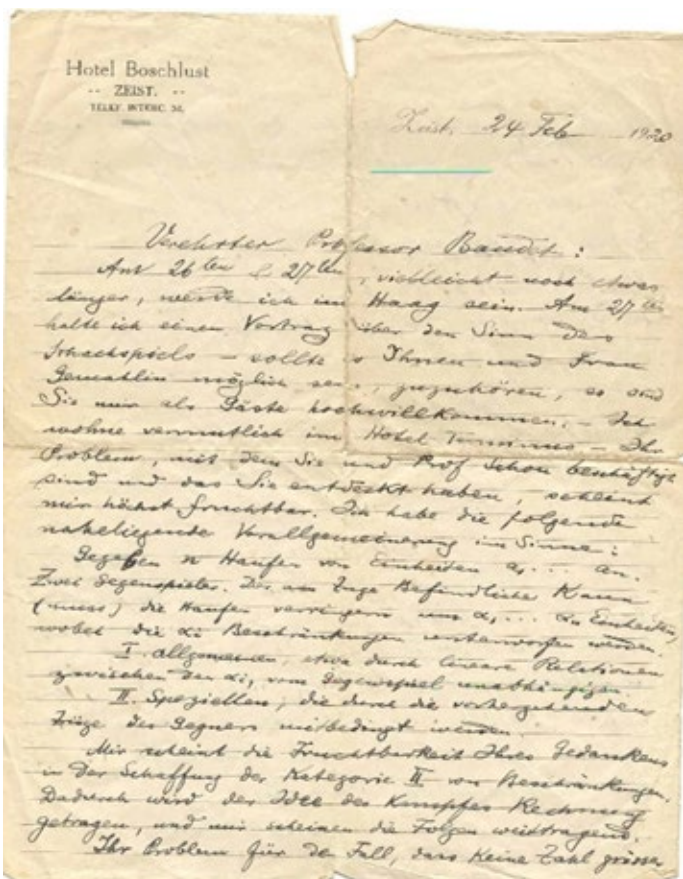 Hotel Boschlust
-- ZEIST. --
TELEF. INTERC. 34.
Zeist, 24 Feb 1920
Verehrter Professor Baudet:
Am 26ten & 27ten, vielleicht noch etwas
länger, werde ich im Haag sein. Am 27ten
halte ich einen Vortrag über den Sinn des
Schachspiels – sollte es Ihnen und Frau
Gemahlin möglich sein, zuzuhören, so sind
Sie mir als Gäste hochwillkommen. – Ich
wohne vermutlich im Hotel Terminus – Ihr
Problem, mit dem Sie und Prof Schou beschäftigt
sind und das Sie entdeckt haben, scheint
mir höchst fruchtbar. Ich habe die folgende
naheliegende Verallgemeinerung im Sinne:
Gegeben n Haufen von Einheiten a₁ ... an.
Zwei Gegenspieler. Der am Zuge Befindliche kann
(muss) die Haufen verringern um α₁, ... αn Einheiten,
wobei die αi Beschränkungen unterworfen werden.
I. allgemeinen, etwa durch lineare Relationen
zwischen den αi, vom Gegenspiel unabhängigen
II. Speziellen, die durch die vorhergehenden
Züge des Gegners mitbedingt werden.
Mir scheint die Fruchtbarkeit Ihres Gedankens
in der Schaffung der Kategorie II von Beschränkungen.
Dadurch wird der Idee des Kampfes Rechnung
getragen, und mir scheinen die Folgen weittragend.
Ihr Problem für den Fall, dass keine Zahl grösser